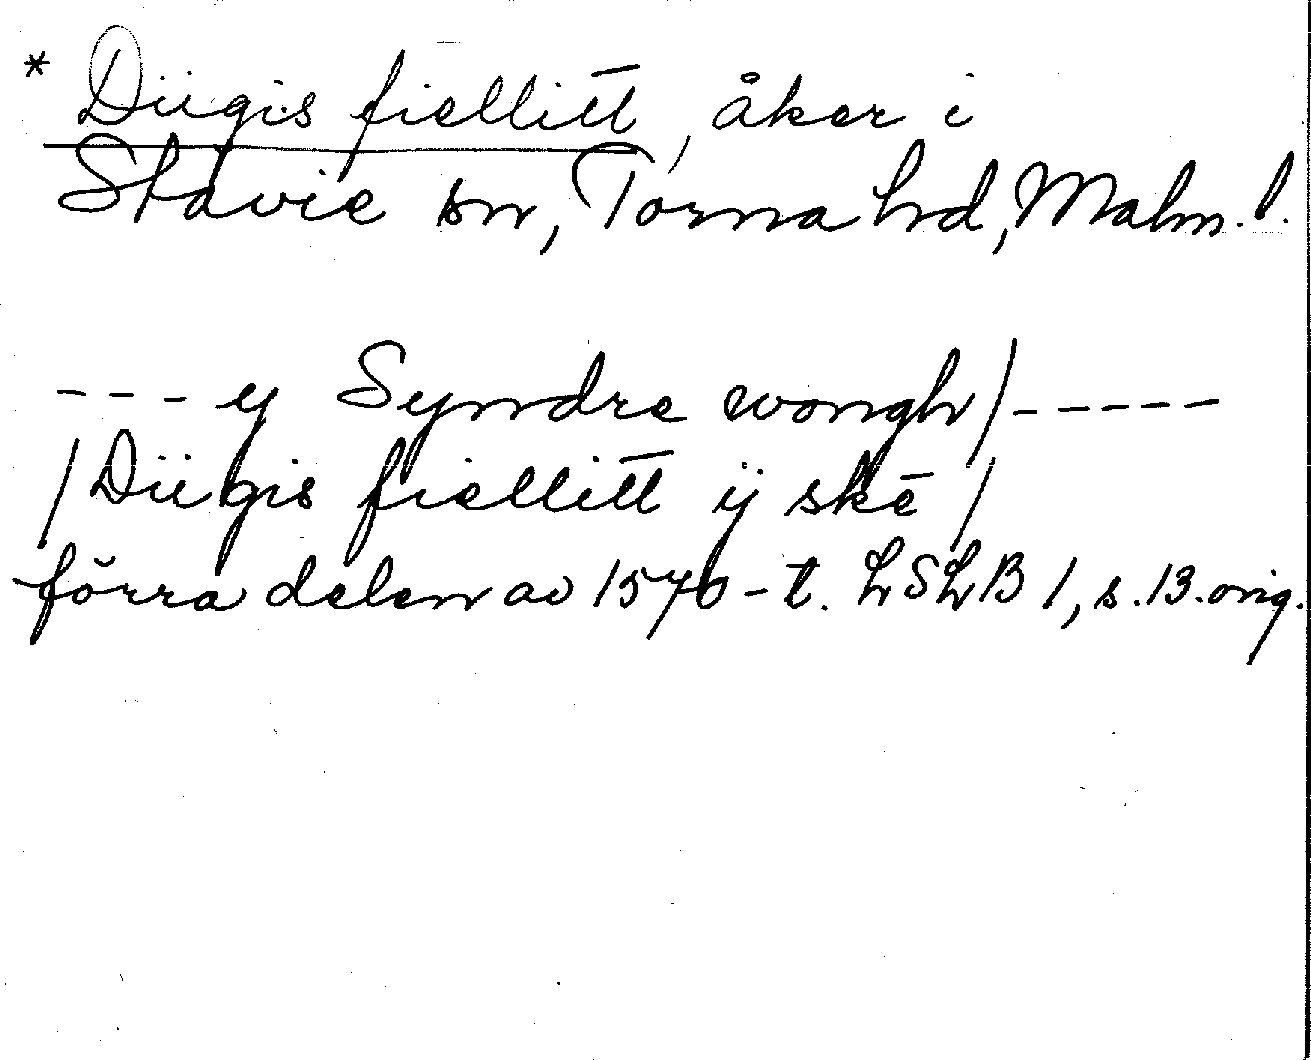 * Dügis fiellitt, åker i
Stävie sn, Torna hrd, Malm. l.
- - - y Syndre wongh/- - - - -
/Dügis fiellitt ij skē/
förra delen av 1570-t. LSLB 1, s. 13. orig.